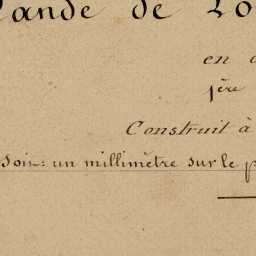 lande de Lo
en
1ère
Construit à
soit: un millimètre sur le p